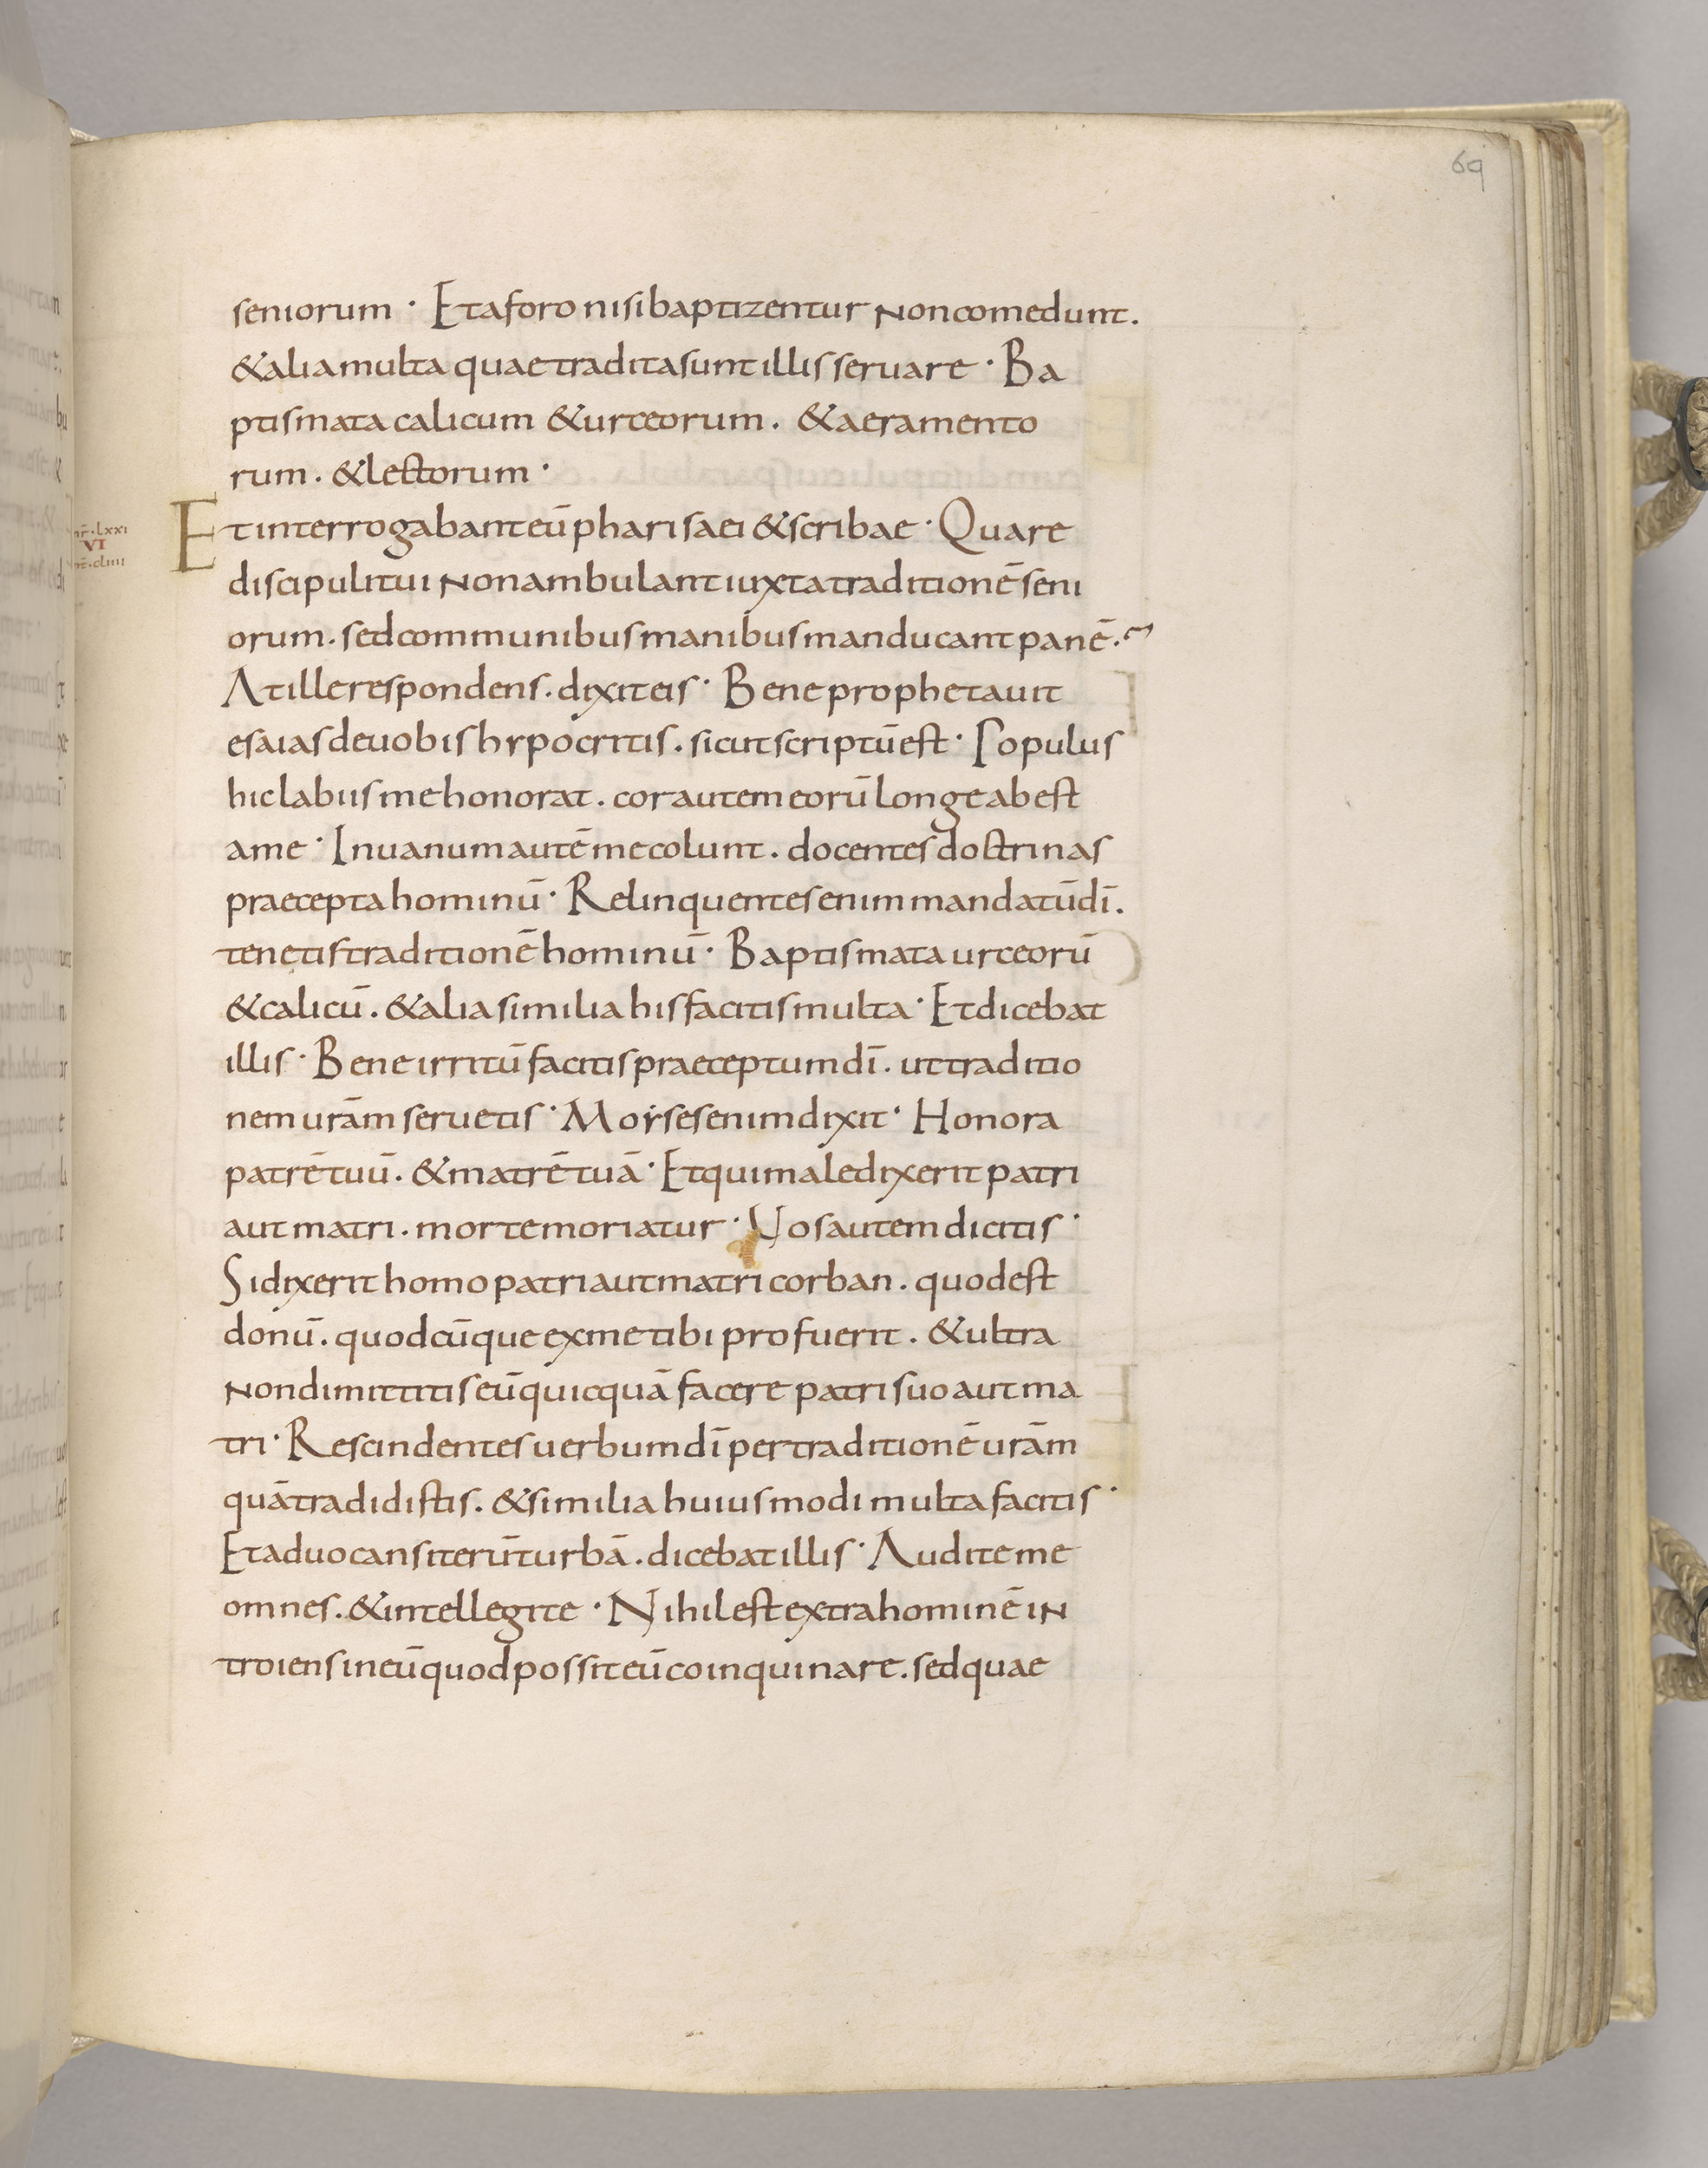 69
seniorum · Et a foro nisi baptizentur non comedunt.
& alia multa quae tradita sunt illis seruare · Ba
ptismata calicum & urceorum. & aeramento
rum. & lectorum ·
mr̄. lxxi
VI
mt̄. cliiii
Et interrogabant eū pharisaei & scribae · Quare
discipuli tui non ambulant iuxta traditionē seni
orum. sed communibus manibus manducant panē.
At ille respondens. dixit eis · Bene prophetauit
esaias de uobis hypocritis. sicut scriptū est · Populus
hic labiis me honorat. cor autem eorū longe abest
a me · In uanum autē me colunt. docentes doctrinas
praecepta hominū · Relinquentes enim mandatū dī.
tenetis traditionē hominū · Baptismata urceorū
& calicū. & alia similia his facitis multa · Et dicebat
illis · Bene irritū facitis praeceptum dī. ut traditio
nem urām seruetis · Moẏses enim dixit · Honora
patrē tuū. & matrē tuā · Et qui maledixerit patri
aut matri. morte moriatur · Vos autem dicitis ·
Si dixerit homo patri aut matri corban. quod est
donū. quodcūque ex me tibi profuerit. & ultra
non dimittitis eū quicquā facere patri suo aut ma
tri · Rescindentes uerbum dī per traditionē urām
quā tradidistis. & similia huiusmodi multa facitis ·
Et aduocans iterū turbā. dicebat illis · Audite me
omnes. & intellegite · Nihil est extra hominē in
troiens in eū quod possit eū coinquinare. sed quae